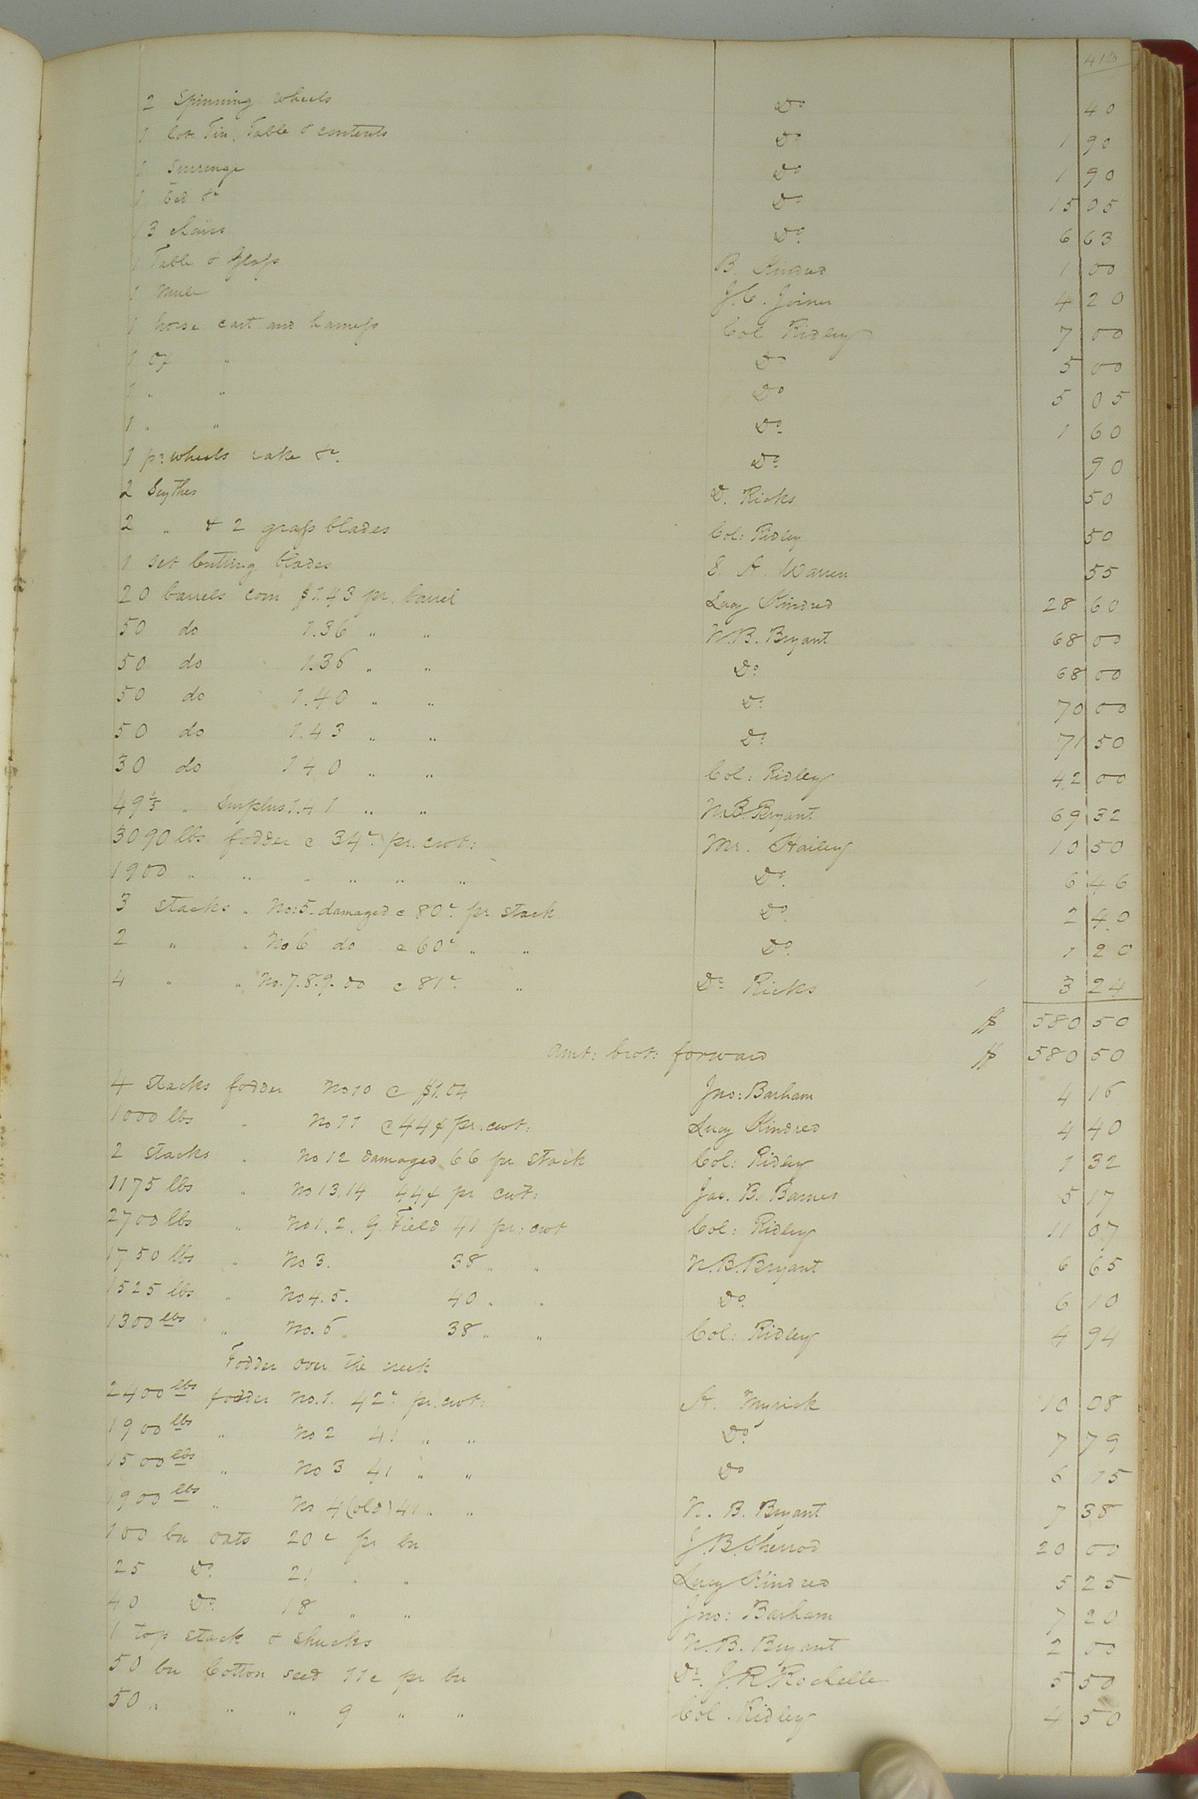 2 Spinning wheels Do 40
1 lot Tin, Table & contents Do 1 90
1 Do 1 90
1 Bed &c Do 15 05
13 chairs Do. 6 63
1 Table & Glass B. Kindred 1 00
1 Mule J.C. Joiner 4 20
1 horse cart and harness Col Ridley 7 00
1 ox " Do 5 00
1 " " Do 5 05
1 " " Do. 1 60
1 pr. wheels rake &c. Do. 90
2 Scythes D. Ricks 50
2 " & 2 grass blades Col: Ridley 50
1 set Cutting blades S. A. Warren 55
20 barrels corn $1.43 pr. barrel Lucy Kindred 28 60
50 do 1.36 " " N.B. Bryant 68 00
50 do 1.36 " " Do. 68 00
50 do 1.40 " " Do. 70 00
50 do 1.43 " " Do. 71 50
30 do 140 " " Col: Ridley 42 00
Surplus 1.41 " " N.B. Bryant 69 32
3090 lbs fodder @ 34c. pr. cwt: Mr. Hailey 10 50
1900 " " " " " " Do. 6 46
3 stacks " No: 5. damaged @ 80c. pr stack Do. 2 40
2 " " No 6 do @ 60c " " Do. 1 20
4 " " No. 7.8.9. @ 81c. " Ricks 3 24
$ 580 50
Amt: brot: forward $ 580 50
4 stacks fodder No 10 @ $1.04 Jno: Barham 4 16
1000 lbs " No 11 @ 44¢ pr. cwt: Lucy Kindred 4 40
2 stacks " No 12 damaged 66 pr stack Col: Ridley 1 32
1175 lbs " No 13.14 44¢ pr cwt: Jas. B. Barnes 5 17
2700 lbs " No 1. 2. G. Field 41 pr: cwt Col: Ridley 11 07
1750 lbs " No 3. 38 " " N.B. Bryant 6 65
1525 lbs " No 4.5. 40 " " Do. 6 10
1300 lbs " No. 6 38 " " Col: Ridley 4 94
Fodder over the creek
2400 lbs fodder No. 1. 42c pr. cwt: A. Myrick 10 08
1900 lbs " No 2 41 " " Do. 7 79
1500 lbs " No 3 41 " " Do 6 15
1900 lbs " No 4 (old) 41 " " N. B. Bryant 7 38
100 bu oats 20c pr bu J.B. Sherrod 20 00
25 Do. 21 " " Lucy Kindred 5 25
40 Do. 18 " " Jno: Barham 7 20
1 top stack & shucks N.B. Bryant 2 00
50 bu Cotton seed 11c pr bu Dr. J R Rochelle 5 50
50 " " " 9 " " Col. Ridley 4 50